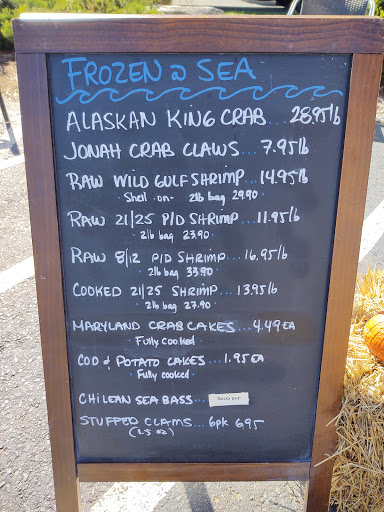 FROZEN @ SEA
ALASKAN KING CRAB... 28.95lb
JONAH CRAB CLAWS... 7.95lb
RAW WILD GULF SHRIMP... 14.95lb
· Shell -on- 2lb bag 29.90 ·
RAW 21/25 P/D SHRIMP... 11.95lb
· 2lb bag 23.90 ·
RAW 8/12 P/D SHRIMP... 16.95lb
· 2lb bag 33.90 ·
COOKED 21/25 SHRIMP... 13.95lb
· 2lb bag 27.90 ·
MARYLAND CRAB CAKES... 4.49 EA
· Fully cooked
COD & POTATO CAKES... 1.95 EA
· Fully cooked ·
CHILEAN SEA BASS... SOLD OUT
STUFFED CLAMS... 6pk 6.95
(1.5 oz)